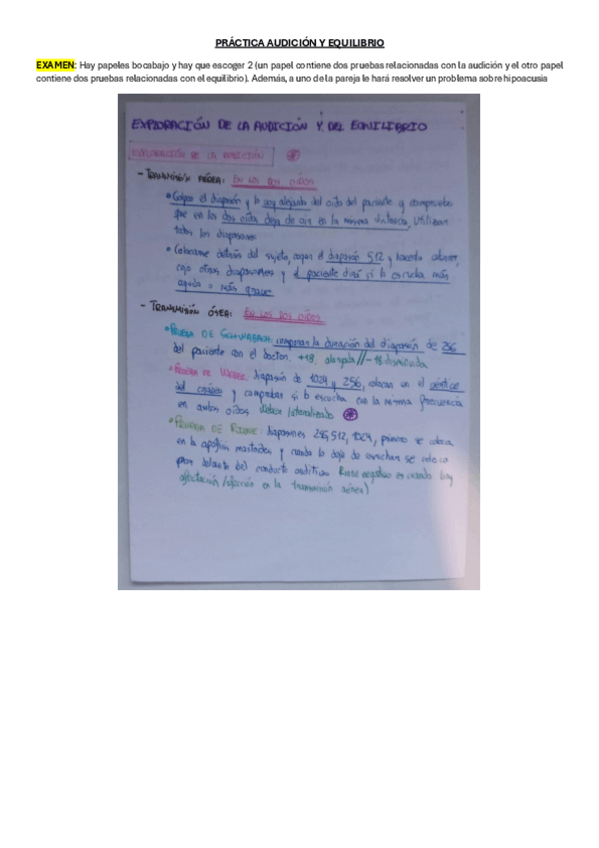 PRÁCTICA AUDICIÓN Y EQUILIBRIO
EXAMEN: Hay papeles bocabajo y hay que escoger 2 (un papel contiene dos pruebas relacionadas con la audición y el otro papel
contiene dos pruebas relacionadas con el equilibrio). Además, a uno de la pareja le hará resolver un problema sobre hipoacusia
EXPLORACIÓN DE LA AUDICIÓN Y DEL EQUILIBRIO
EXPLORACIÓN DE LA AUDICIÓN
- TRANSMISIÓN AÉREA: EN LOS DOS OÍDOS
• Golpeo el diapasón y lo voy alejando del oído del paciente y compruebo
que en los dos oídos deja de oír en la misma distancia. Utilizar
todos los diapasones
• Colocarme detrás del sujeto, cojo el diapasón 512 y hacerlo vibrar,
cojo otros diapasones y el paciente dirá si lo escucha más
agudo o más grave
- TRANSMISIÓN ÓSEA: EN LOS DOS OÍDOS
• PRUEBA DE SCHWABACH: comparar la duración del diapasón de 256
del paciente con el doctor. +18, alargada // -18 disminuida
• PRUEBA DE WEBER: diapasón de 1024 y 256, colocar en el vértice
del cráneo y comprobar si lo escucha con la misma frecuencia
en ambos oídos. Weber lateralizado
• PRUEBA DE RINNE: diapasones 256, 512, 1024, primero se coloca
en la apófisis mastoides y cuando lo deje de escuchar se coloca
por delante del conducto auditivo. Rinne negativo es cuando hay
afectación/afección en la transmisión aérea)